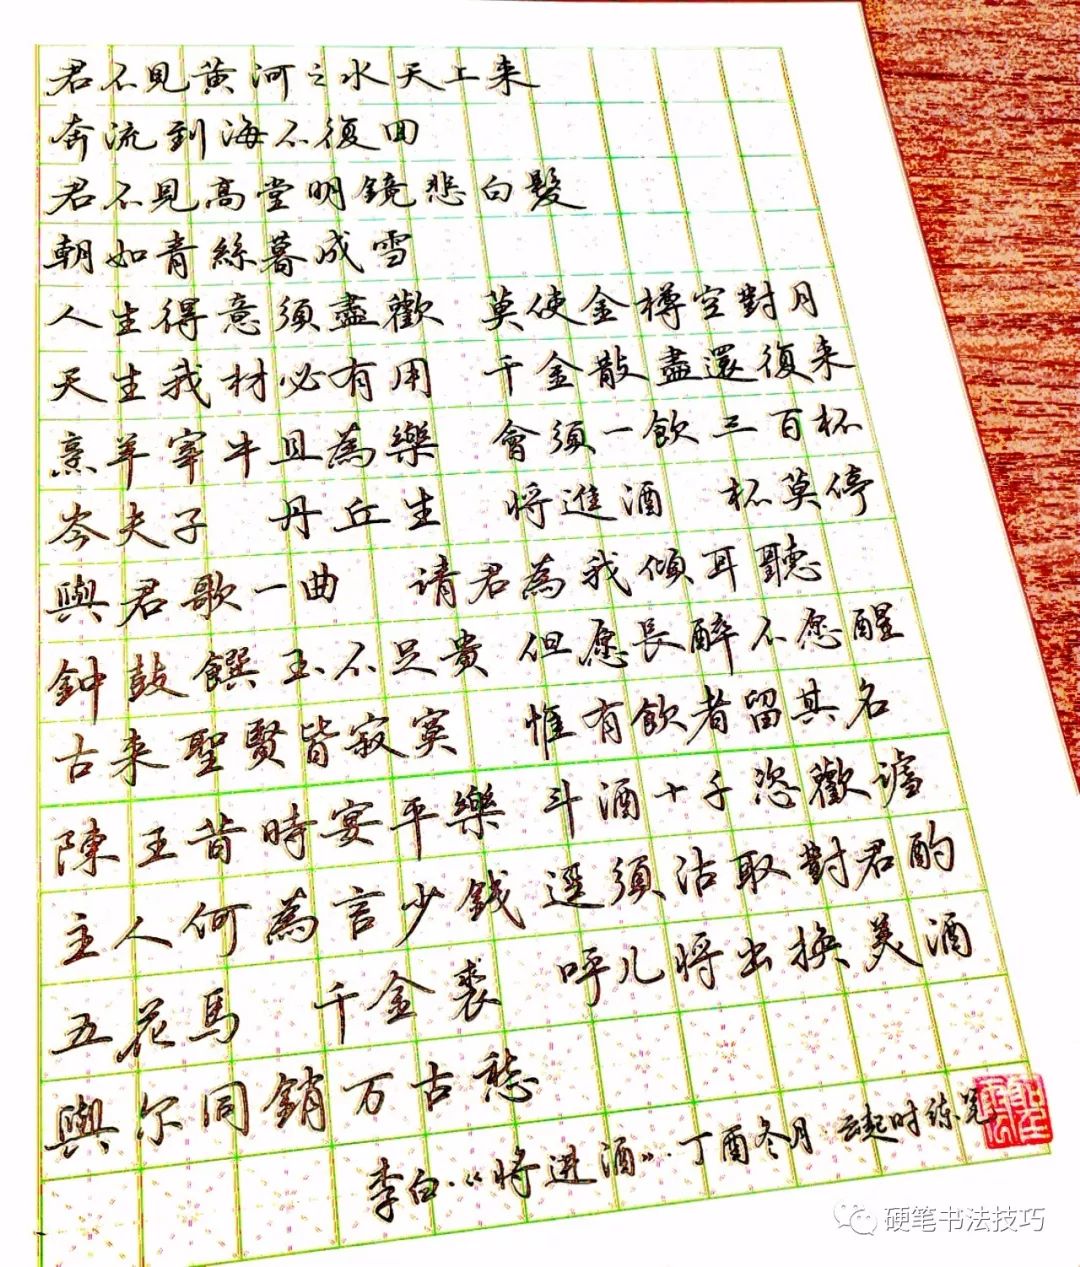 君不見黄河之水天上来
奔流到海不復回
君不見高堂明鏡悲白髮
朝如青絲暮成雪
人生得意須盡歡 莫使金樽空對月
天生我材必有用 千金散盡還復来
烹羊宰牛且為樂 會須一飲三百杯
岑夫子 丹丘生 将進酒 杯莫停
與君歌一曲 请君為我傾耳聽
鈡鼓饌玉不足貴 但愿長醉不愿醒
古来聖賢皆寂寞 惟有飲者留其名
陳王昔時宴平樂 斗酒十千恣歡謔
主人何為言少錢 逕須沽取對君酌
五花馬 千金裘 呼儿将出换美酒
與尔同銷万古愁
李白·《将进酒》·丁酉冬月·云起时练笔
硬笔书法技巧